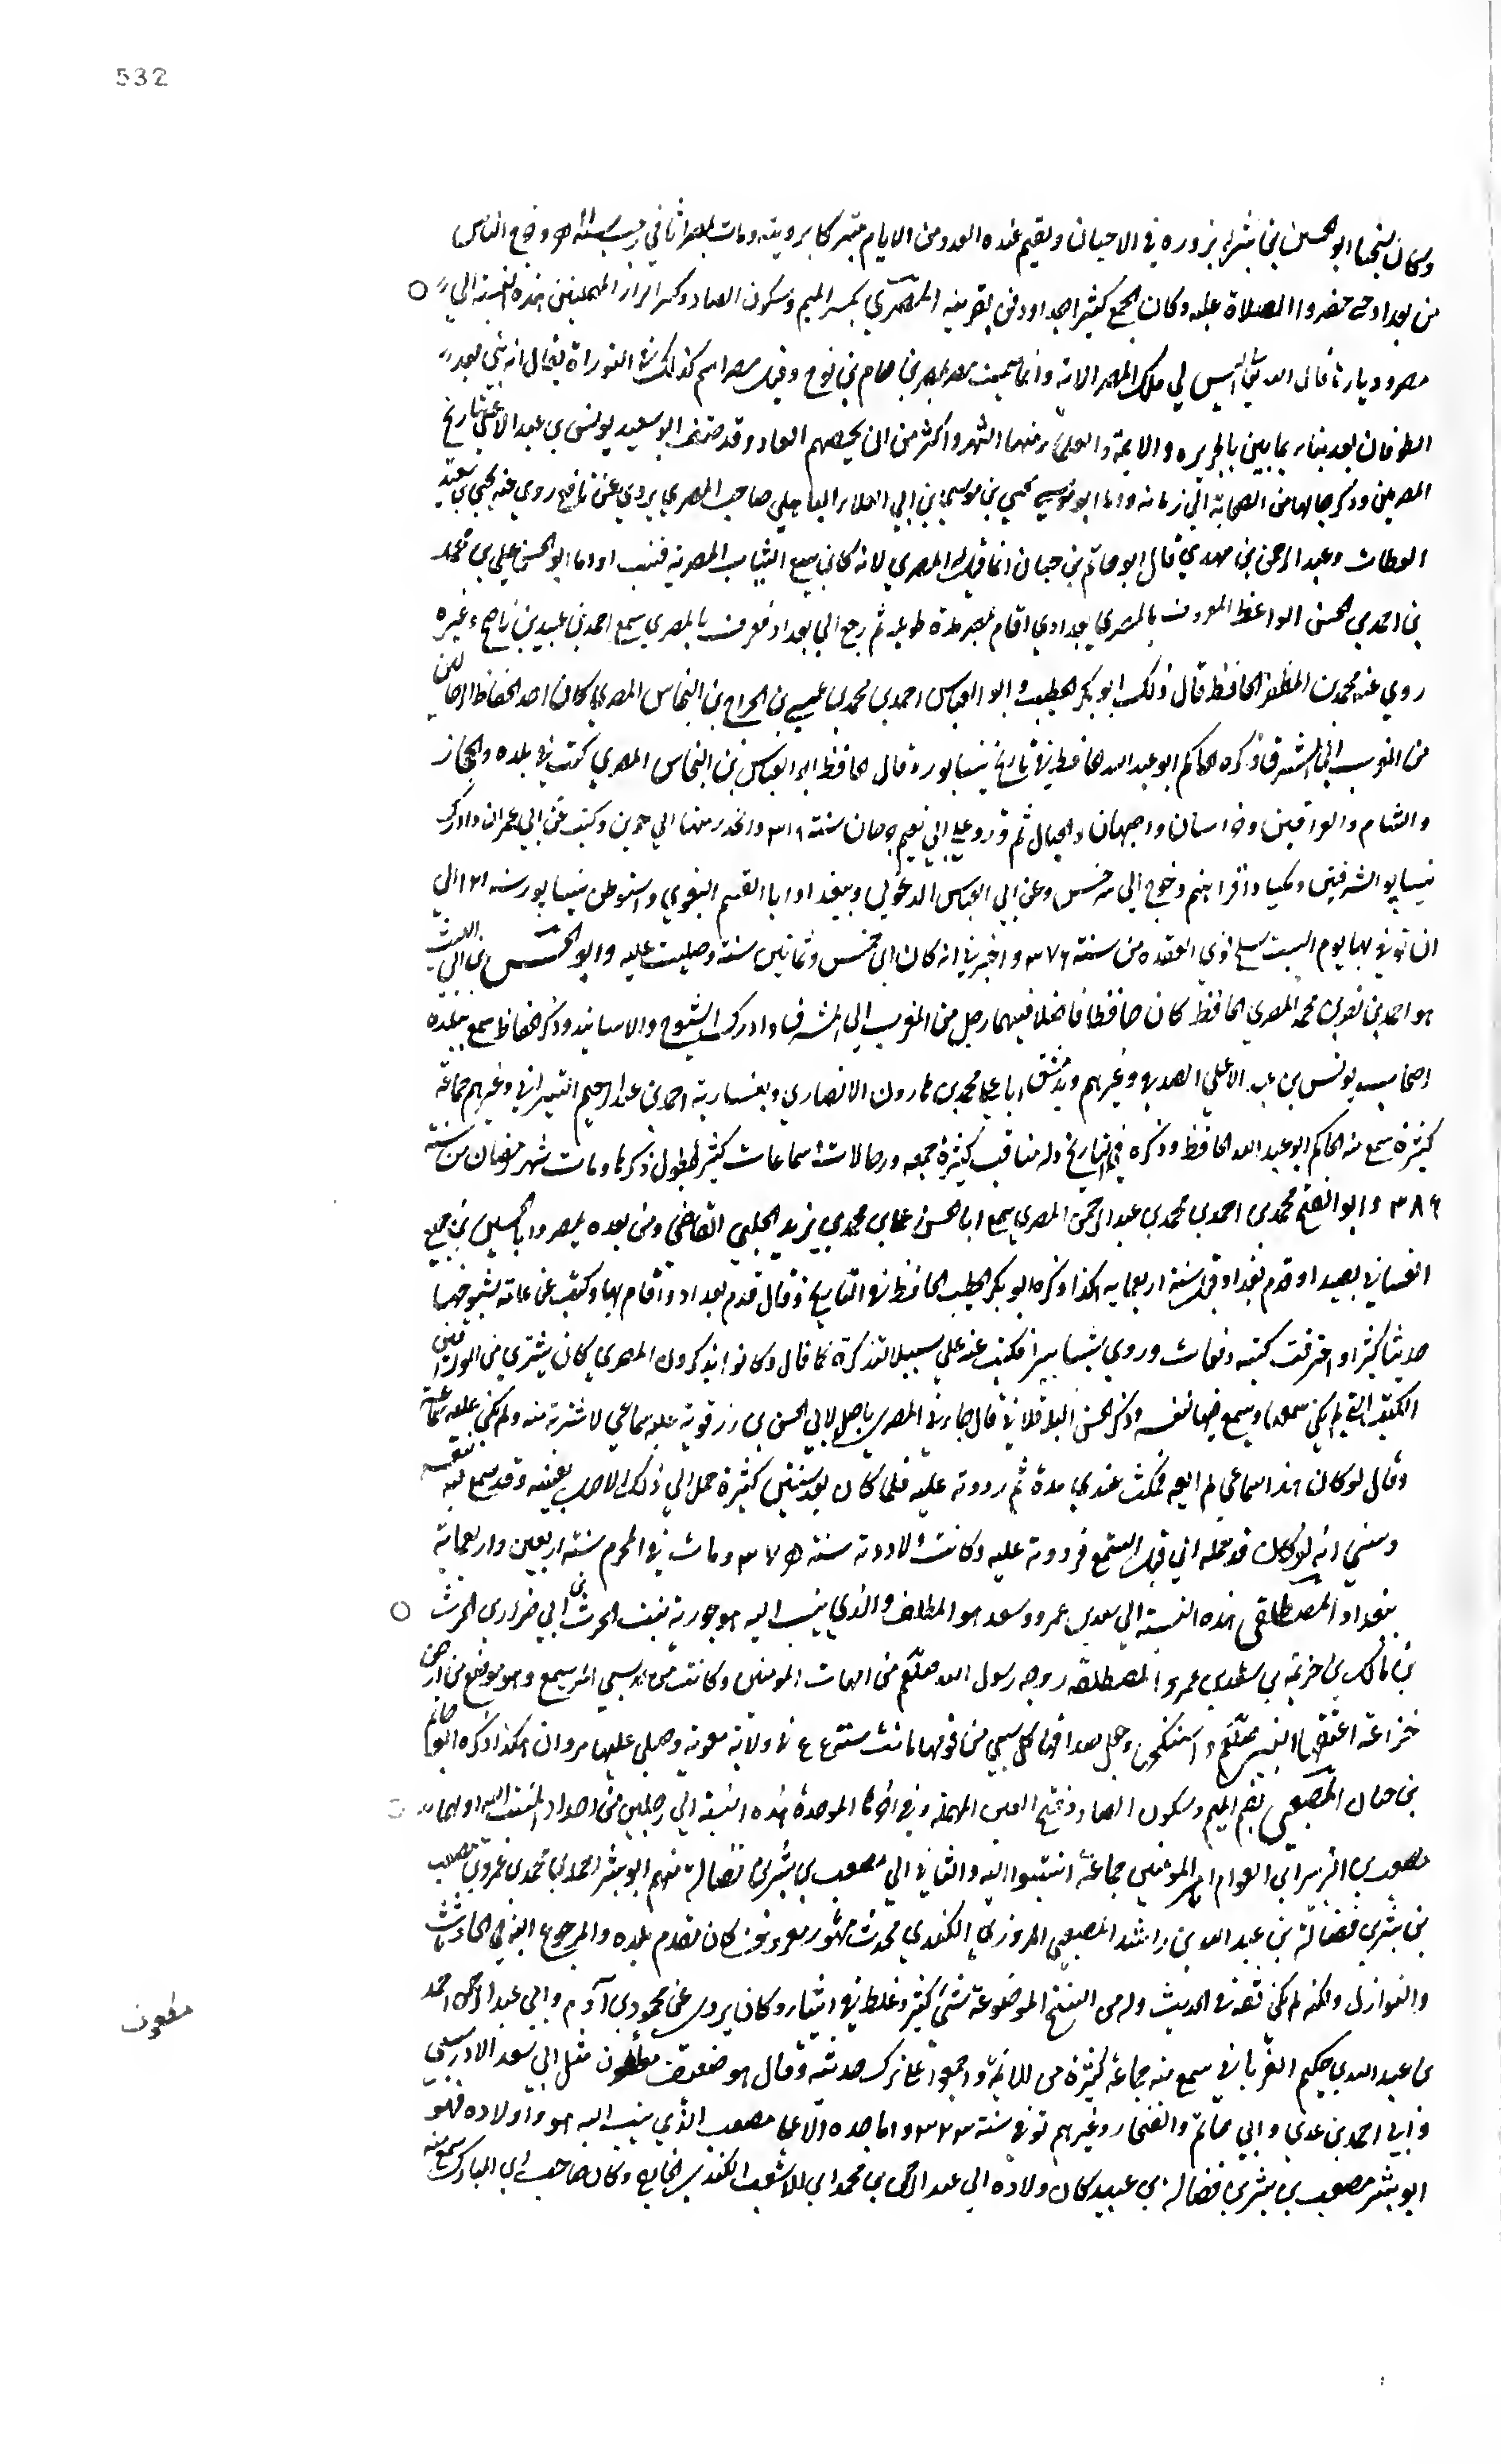 532
وكان شيخنا ابو الحسين بن بشران يزوره في الاحيان ويقيم عنده العدد من الايام متبركا برويته ومات بمصراثا في ربيع سنة وخرج الناس
من بغداد حتى حضروا الصلاة عليه وكان الجمع كثيرا جدا ودفن بقرية المصري بكسر الميم وسكون الصاد وكسر الراء المهملتين هذه النسبة الي
مصر وديارها قال الله تعالى اليس لي ملك مصر الاية وانما سميت مصر بمصر بن حام بن نوح وقيل مصر اسم كذلك في التوراة يقال انه بني بعد
الطوفان بعد بناء ثمانين بالجزيرة والايمة والعلماء منها اشهر واكثر من ان يحصيهم العاد وقد صنف ابو سعيد يونس بن عبد الاعلي تاريخ
المصريين وذكر رجالها من الصحابة الي زمانه واما ابو موسي يحيي بن موسي بن ابي العلاء الباهلي صاحب المصري يروي عن نافع روي عنه يحيي بن سعيد
القطان وعبد الرحمن بن مهدي قال ابو حاتم بن حبان انما قيل له المصري لانه كان يبيع الثياب المصرية فنسب اواما ابو الحسن علي بن محمد
بن احمد بن الحسن الواعظ المعروف بالمصري بغدادي اقام بمصر مدة طويلة ثم رجع الي بغداد فعرف بالمصري سمع احمد بن عبيد بن ناصح وغيره
روي عنه محمد بن المظفر الحافظ قال ذلك ابو بكر الخطيب وابو العباس احمد بن محمد بن عيسي بن الجراح بن النحاس المصري كان احد الحفاظ الرحالين
من المغرب الي الشرق ذكره الحاكم ابو عبد الله الحافظ في تاريخ نيسابور وقال الحافظ ابو العباس بن النحاس المصري كتب في بلده والحجاز
والشام والعراقين وخراسان واصبهان والجبال ثم ورد علي ابي نعيم جرجان سنة ٣١٨ وانحدر منها الي جوين وكتب عن ابي عمران وادرك
نيسابور الشرقيين ومكيا واقرانهم وخرج الي سرخس وعن ابي العباس الدغولي وببغداد ابا القسم البغوي واستوطن نيسابور سنة ٢١ الي
ان توفي بها يوم السبت سلخ ذي القعدة من سنة ٣٧٦ واخبرني انه كان ابن خمس وثمانين سنة وصليت عليه وابو الحسن بن ابي الليث
هو احمد بن نصر بن محمد المصري الحافظ كان حافظا فاضلا فهما رحل من المغرب الي المشرق وادرك الشيوخ والاسانيد وذكر الحفاظ سمع ببلده
اصحاب يونس بن عبد الاعلي الصدفي وغيرهم وبدمشق ابا علي محمد بن هارون الانصاري وبقيسارية احمد بن عبد الرحيم القيسراني وغيرهم جماعة
كثيرة سمع منه الحاكم ابو عبد الله الحافظ وذكره في التاريخ وله مناقب كثيرة جمعه ورحالات وسماعات كثير يطول ذكرها ومات شهر رمضان من سنة
٣٨٦ وابو الفتح محمد بن احمد بن محمد بن عبد الرحمن المصري سمع ابا الحسن علي بن محمد بن يزيد الحلبي القاضي ومن بعده بمصر وابا الحسين بن جميع
الغساني بصيدا وقدم بغداد قبل سنة اربعماية هكذا ذكره ابو بكر الخطيب الحافظ في التاريخ وقال قدم بغداد واقام بها وكتب عن عامة شيوخها
حديثا كثيرا واحترقت كتبه دفعات وروي شيئا يسيرا فكتبت عنه علي سبيل التذكرة كما قال وكانوا يذكرون المصري كان يشتري من الوراقين
الكتب التي لم يكن سمعها ويسمع فيها نفسه وذكر الحسن الباقلاني قال جاءني المصري باصل لابي الحسن بن رزقويه عليه سماعي لاشتريه منه ولم يكن عليه سماعه
وقال لو كان هذا سماعي لم ابعه فمكث عندي مدة ثم رددته عليه فلما كان بعد سنتين كثيرة حمل الي ذلك الاصل بعينه وقد سمع فيه نفسه
ونسي انه لو كان قد حمله الي قبل التسميع فرددته عليه وكانت ولادته سنة ٣٧٥ ومات في المحرم سنة اربعين واربعماية
ببغداد المصطلقي هذه النسبة الي سعد بن عمرو وسعد هو المصطلق والذي ينسب اليه هو جويرية بنت الحرث بن ابي ضرار بن الحرث
بن مالك بن خزيمة بن سعد بن عمرو المصطلقة زوجه رسول الله صلعم من امهات المومنين وكانت من سبي المريسيع وهو موضع من ارض
خزاعة اعتقها النبي صلعم واستنكحها وجعل صداقها كل سبي من قومها ماتت سنة في ولاية معوية وصلي عليها مروان هكذا ذكره ابو حاتم
بن حبان المصعبي بضم الميم وسكون الصاد وفتح العين المهملة وفي اخرها الموحدة هذه النسبة الي رجلين من اجداد المنتسب اليه اولهما
مصعب بن الزبير بن العوام امير المومنين جماعة انتسبوا اليه والثاني الي مصعب بن بشر بن فضالة منهم ابو بشر احمد بن محمد بن عمرو بن مصعب
بن بشر بن فضالة بن عبد الله بن راشد المصعبي المروزي الكندي محدث مشهور معروف كان مقدم بلده والمرجوع اليه في الحادثات
والنوازل ولكنه لم يكن ثقة في الحديث وله من النسخ الموضوعة شيء كثير وغلط في اشياء وكان يروي عن محمود بن ادم وابي عبد الرحمن احمد
بن عبد الله بن حكيم الفرياناني سمع منه جماعة كثيرة من الايمة واجمعوا علي ترك حديثه وقال هو ضعيف مطعون مثل ابي سعد الادريسي
وابي احمد بن عدي وابي حاتم والغنجار وغيرهم توفي سنة ٣٢٣ واما جده الاعلي مصعب الذي ينسب اليه هو واولاده فهو
ابو بشر مصعب بن بشر بن فضالة بن عبيد كان ولاده الي عبد الرحمن بن محمد ابن الاشعث الكندي الخارج وكان صاحب ابن المبارك سمع منه
مطعون